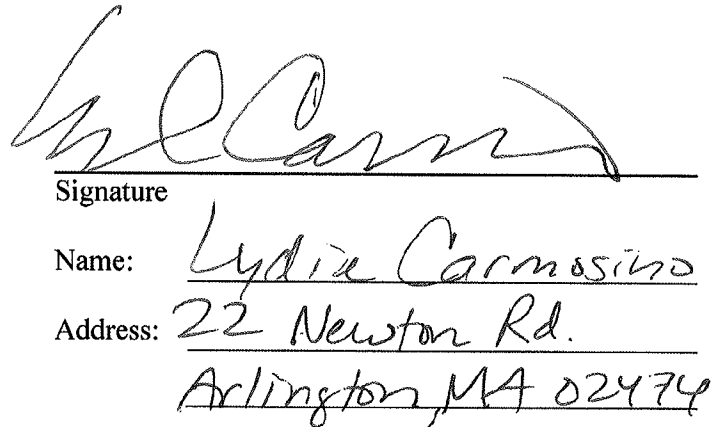 Signature
Name: Lydia Carmosino
Address: 22 Newton Rd.
Arlington, MA 02474